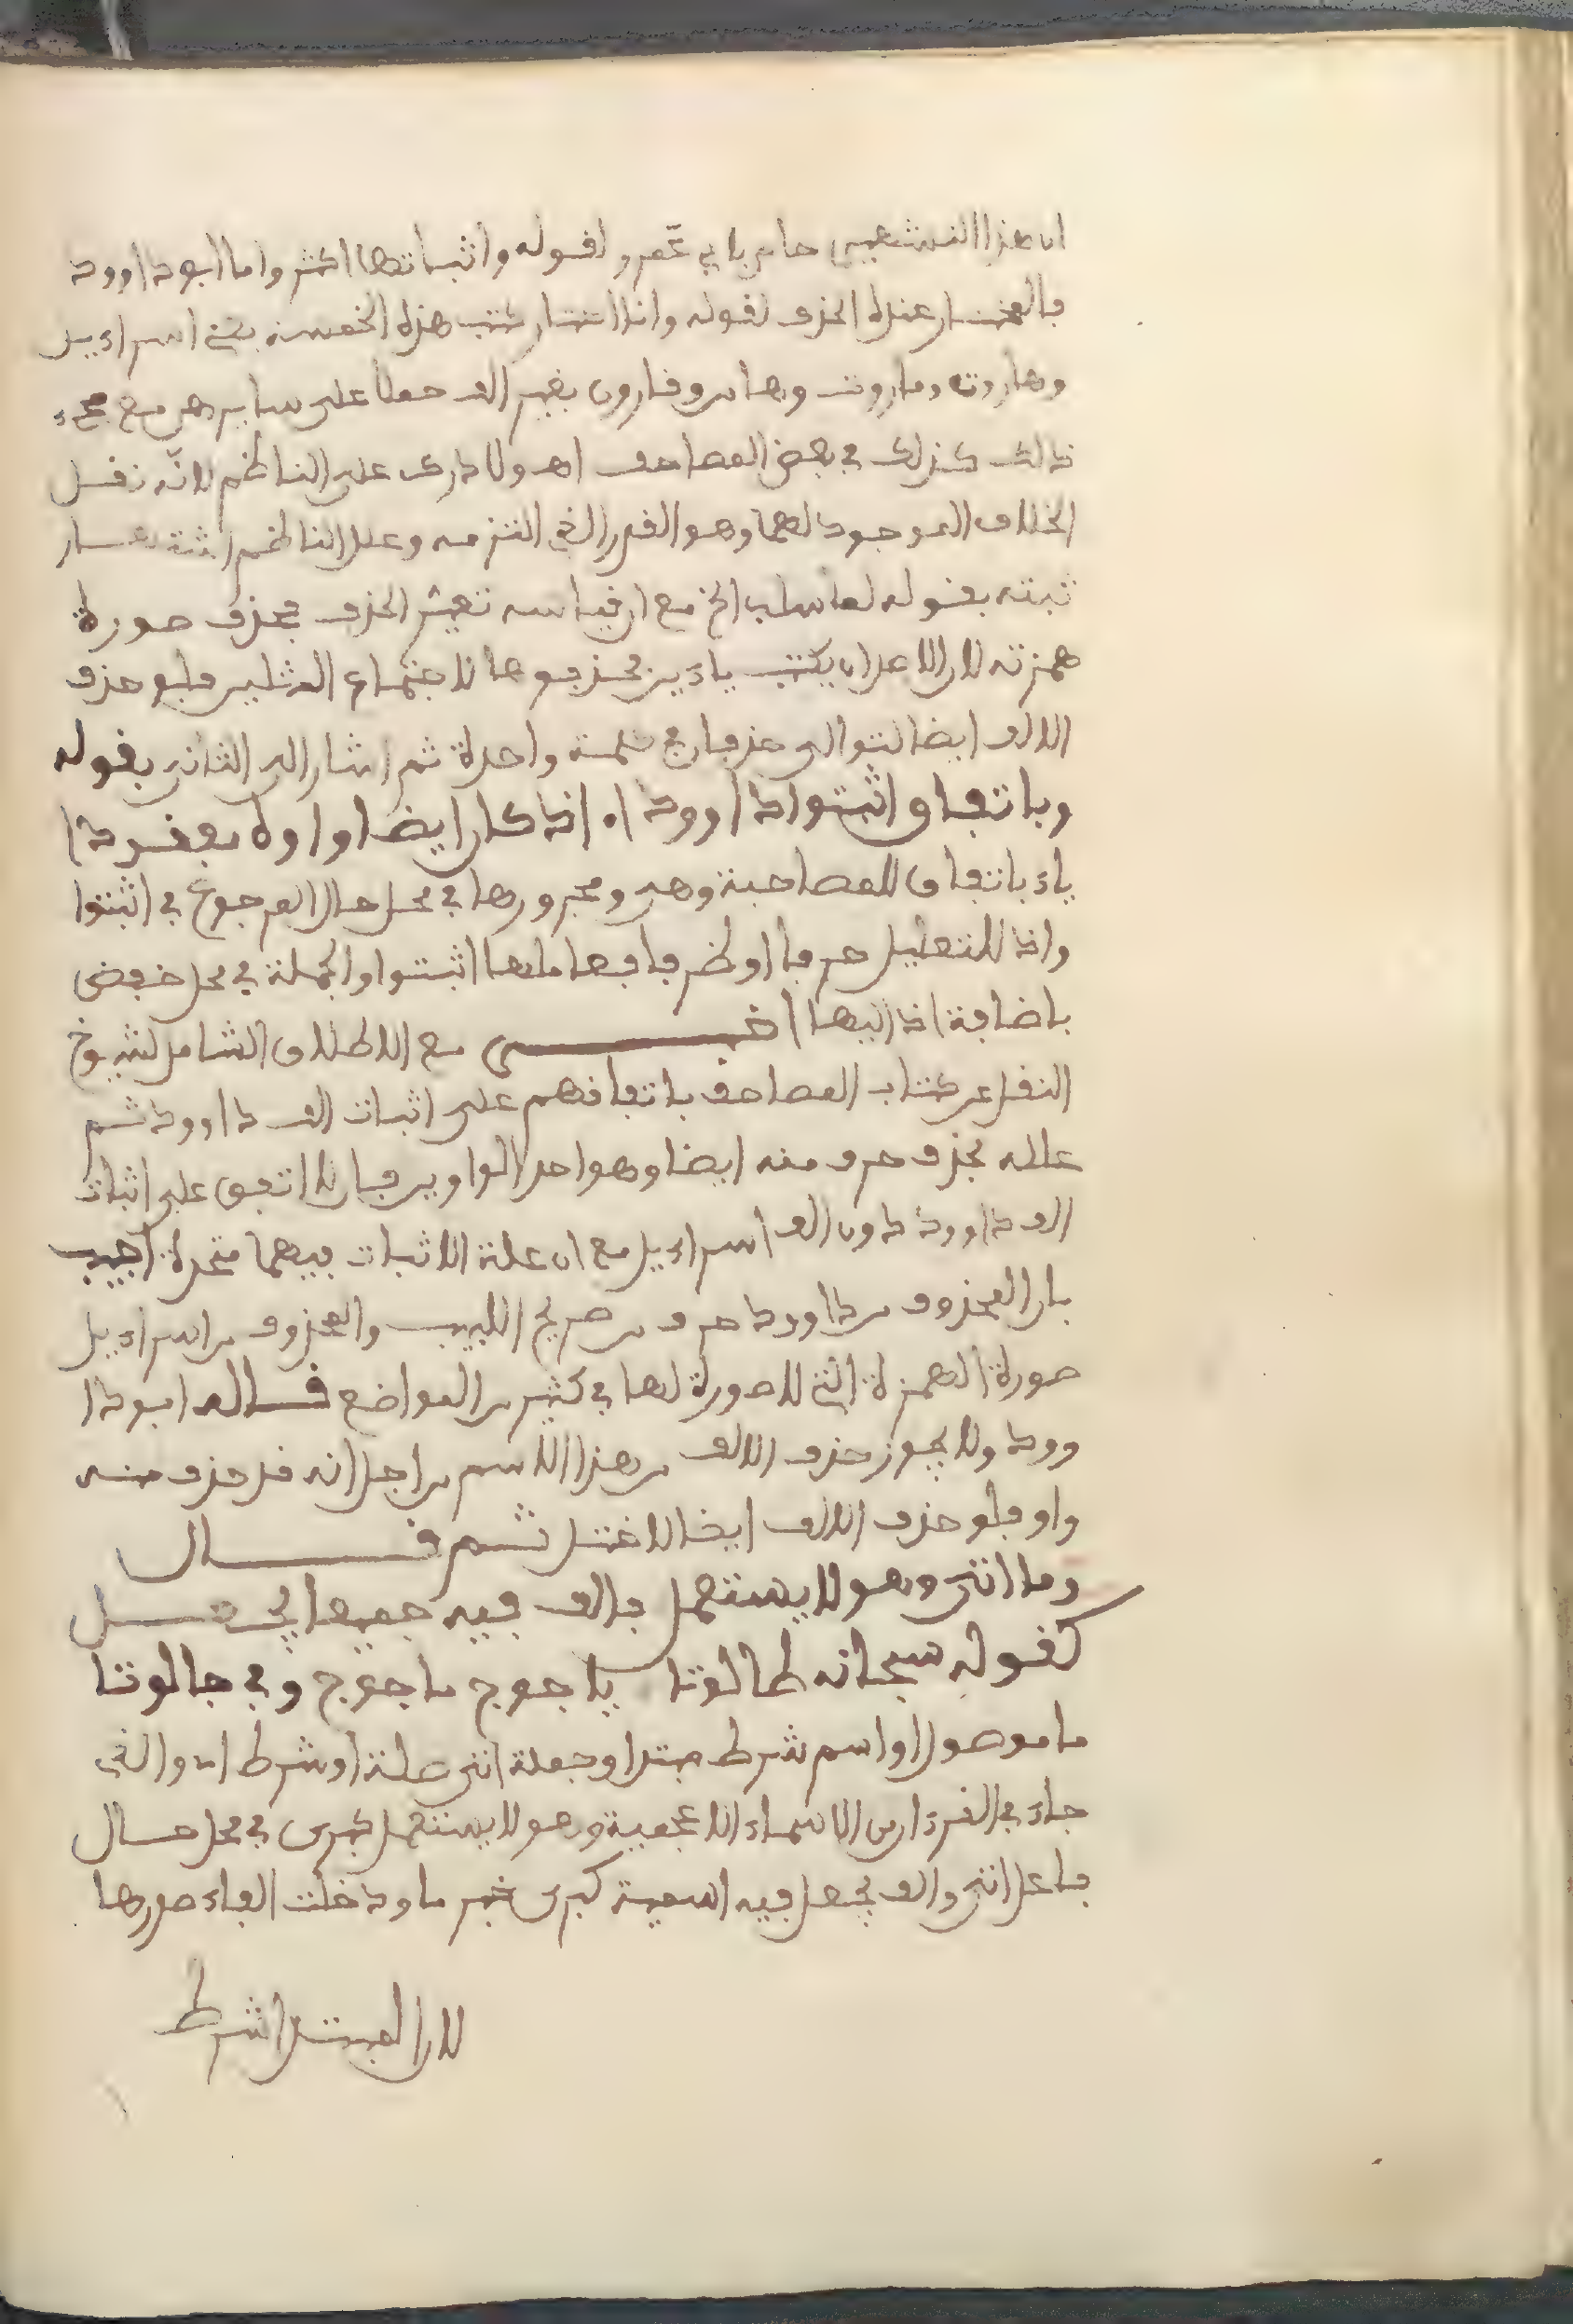 ان هذا التشهير خاص بابي عمرو لقوله واثباتها اكثر واما ابو داوود
فالمختار عنده الحذف لقوله وانا اختار كتب هذه الخمسة يعني اسراءيل
وهاروت وماروت وهامن وقارون بغير الف حملا على سايرهن مع مجيء
ذالك كذلك في بعض المصاحف اهـ ولا درك على الناظم لانه نقل
الخلاف الموجود لهما وهو القدر الذي التزمه وعلل الناظم اشتهار
ثبته بقوله لما سلب الخ مع ان قياسه تعين الحذف بحذف صورة
همزته لان الاصل ان يكتب ياءين فحذفوها لاجتماع المثلين فلو حذف
الالف ايضا لتوالى حذفان في كلمة واحدة ثم اشار الى الثاني بقوله
وباتفاق اثبتوا داوودا ۰ اذ كان ايضا واوه مفقودا
باء باتفاق للمصاحبة وهي ومجرورها في محل حال المرفوع في اثبتوا
واذ للتعليل حرفا او ظرفا فعاملها اثبتوا والجملة في محل خفض
باضافة اذ اليها اخبـــر مع الاطلاق الشامل لشيوخ
النقل عن كتاب المصاحف باتفاقهم على اثبات الف داوود ثم
علله بحذف حرف منه ايضا وهو احد الواوين فان لما اتفق على اثبات
الف داوود دون الف اسراءيل مع ان علة الاثبات فيهما متحدة اجيب
بان المحذوف من داوود حرف من صريح اللبيب والمحذوف من اسراءيل
صورة الهمزة التي لا صورة لها في كثير من المواضع قـال ابو دا
وود ولا يجوز حذف الالف من هذا الاسم من اجل انه قد حذف منه
واو فلو حذف الالف ايضا لاختل ثم قـــال
وما اتى وهو لا يستعمل فالف فيه جميعا يجعـــل
كقوله سبحانه طالوتا ياجوج ماجوج وفي جالوتا
ما موصول او اسم شرط مبتدا وجملة اتى صلة او شرط اي والذي
جاء في القرءان من الاسماء الاعجمية وهو لا يستعمل كبرى في محل حال
فاعل اتى والف يجعل فيه اسمية كبرى خبر ما ودخلت الفاء صدرها
لان المبتدا شرط